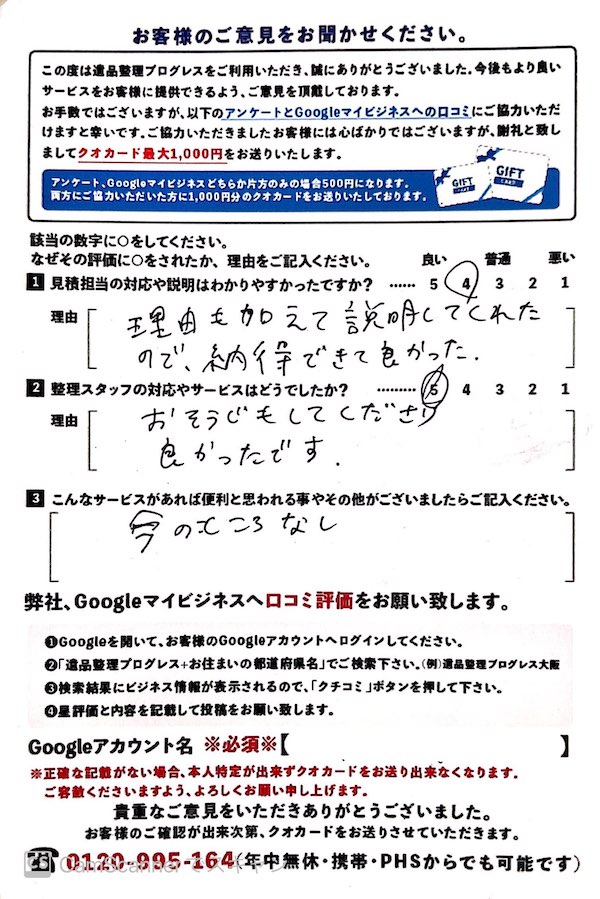 お客様のご意見をお聞かせください。
この度は遺品整理プログレスをご利用いただき、誠にありがとうございました。今後もより良い
サービスをお客様に提供できるよう、ご意見を頂戴しております。
お手数ではございますが、以下のアンケートとGoogleマイビジネスへの口コミにご協力いただ
けますと幸いです。ご協力いただきましたお客様には心ばかりではございますが、謝礼と致し
ましてクオカード最大1,000円をお送りいたします。
アンケート、Googleマイビジネスどちらか片方のみの場合500円になります。
両方にご協力いただいた方に1,000円分のクオカードをお送りいたしております。
GIFT
GIFT
該当の数字に○をしてください。
なぜその評価に○をされたか、理由をご記入ください。 良い 普通 悪い
1 見積担当の対応や説明はわかりやすかったですか? …… 5 4 3 2 1
理由 理由も加えて説明してくれた
ので、納得できて良かった.
2 整理スタッフの対応やサービスはどうでしたか? ……… 5 4 3 2 1
理由 おそうじもしてくださり
良かったです.
3 こんなサービスがあれば便利と思われる事やその他がございましたらご記入ください。
今のところなし
弊社、Googleマイビジネスへ口コミ評価をお願い致します。
❶Googleを開いて、お客様のGoogleアカウントへログインしてください。
❷「遺品整理プログレス+お住まいの都道府県名」でご検索下さい。(例)遺品整理プログレス大阪
❸検索結果にビジネス情報が表示されるので、「クチコミ」ボタンを押して下さい。
❹星評価と内容を記載して投稿をお願い致します。
Googleアカウント名 ※必須※【 】
※正確な記載がない場合、本人特定が出来ずクオカードをお送り出来なくなります。
ご容赦くださいますよう、よろしくお願い申し上げます。
貴重なご意見をいただきありがとうございました。
お客様のご確認が出来次第、クオカードをお送りさせていただきます。
☎0120-995-164(年中無休・携帯・PHSからでも可能です)
CS CamScannerでスキャン